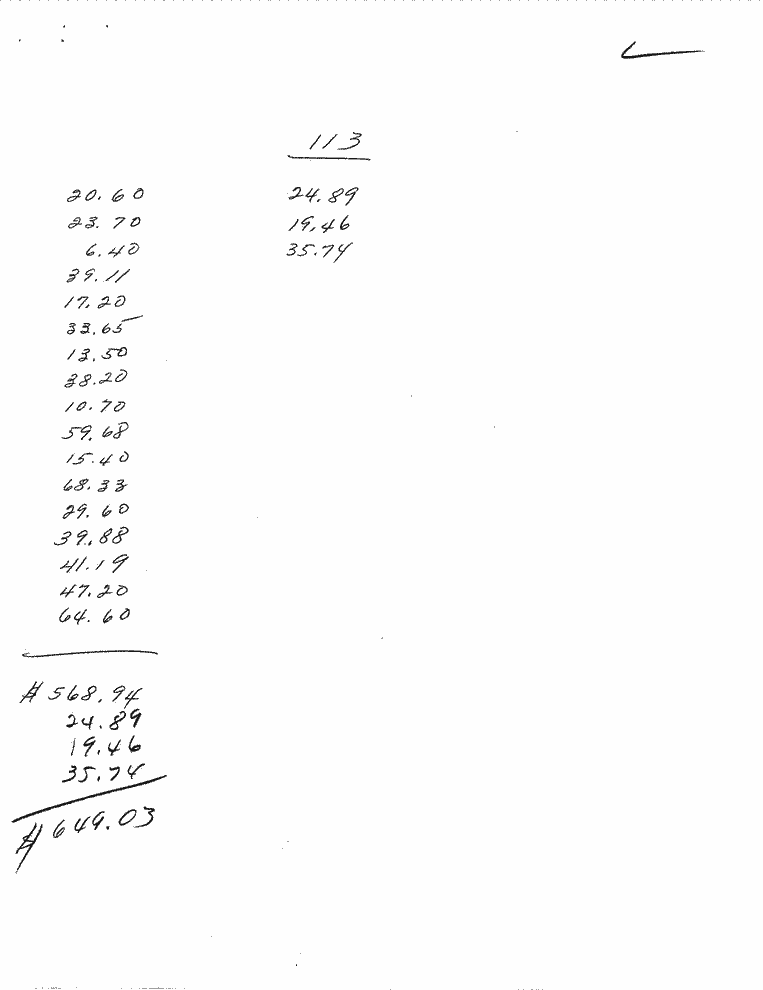 113
20.60 24.89
23.70 19.46
6.40 35.74
39.11
17.20
33.65
13.50
38.20
10.70
59.68
15.40
68.33
29.60
39.88
41.19
47.20
64.60
$568.94
24.89
19.46
35.74
$649.03